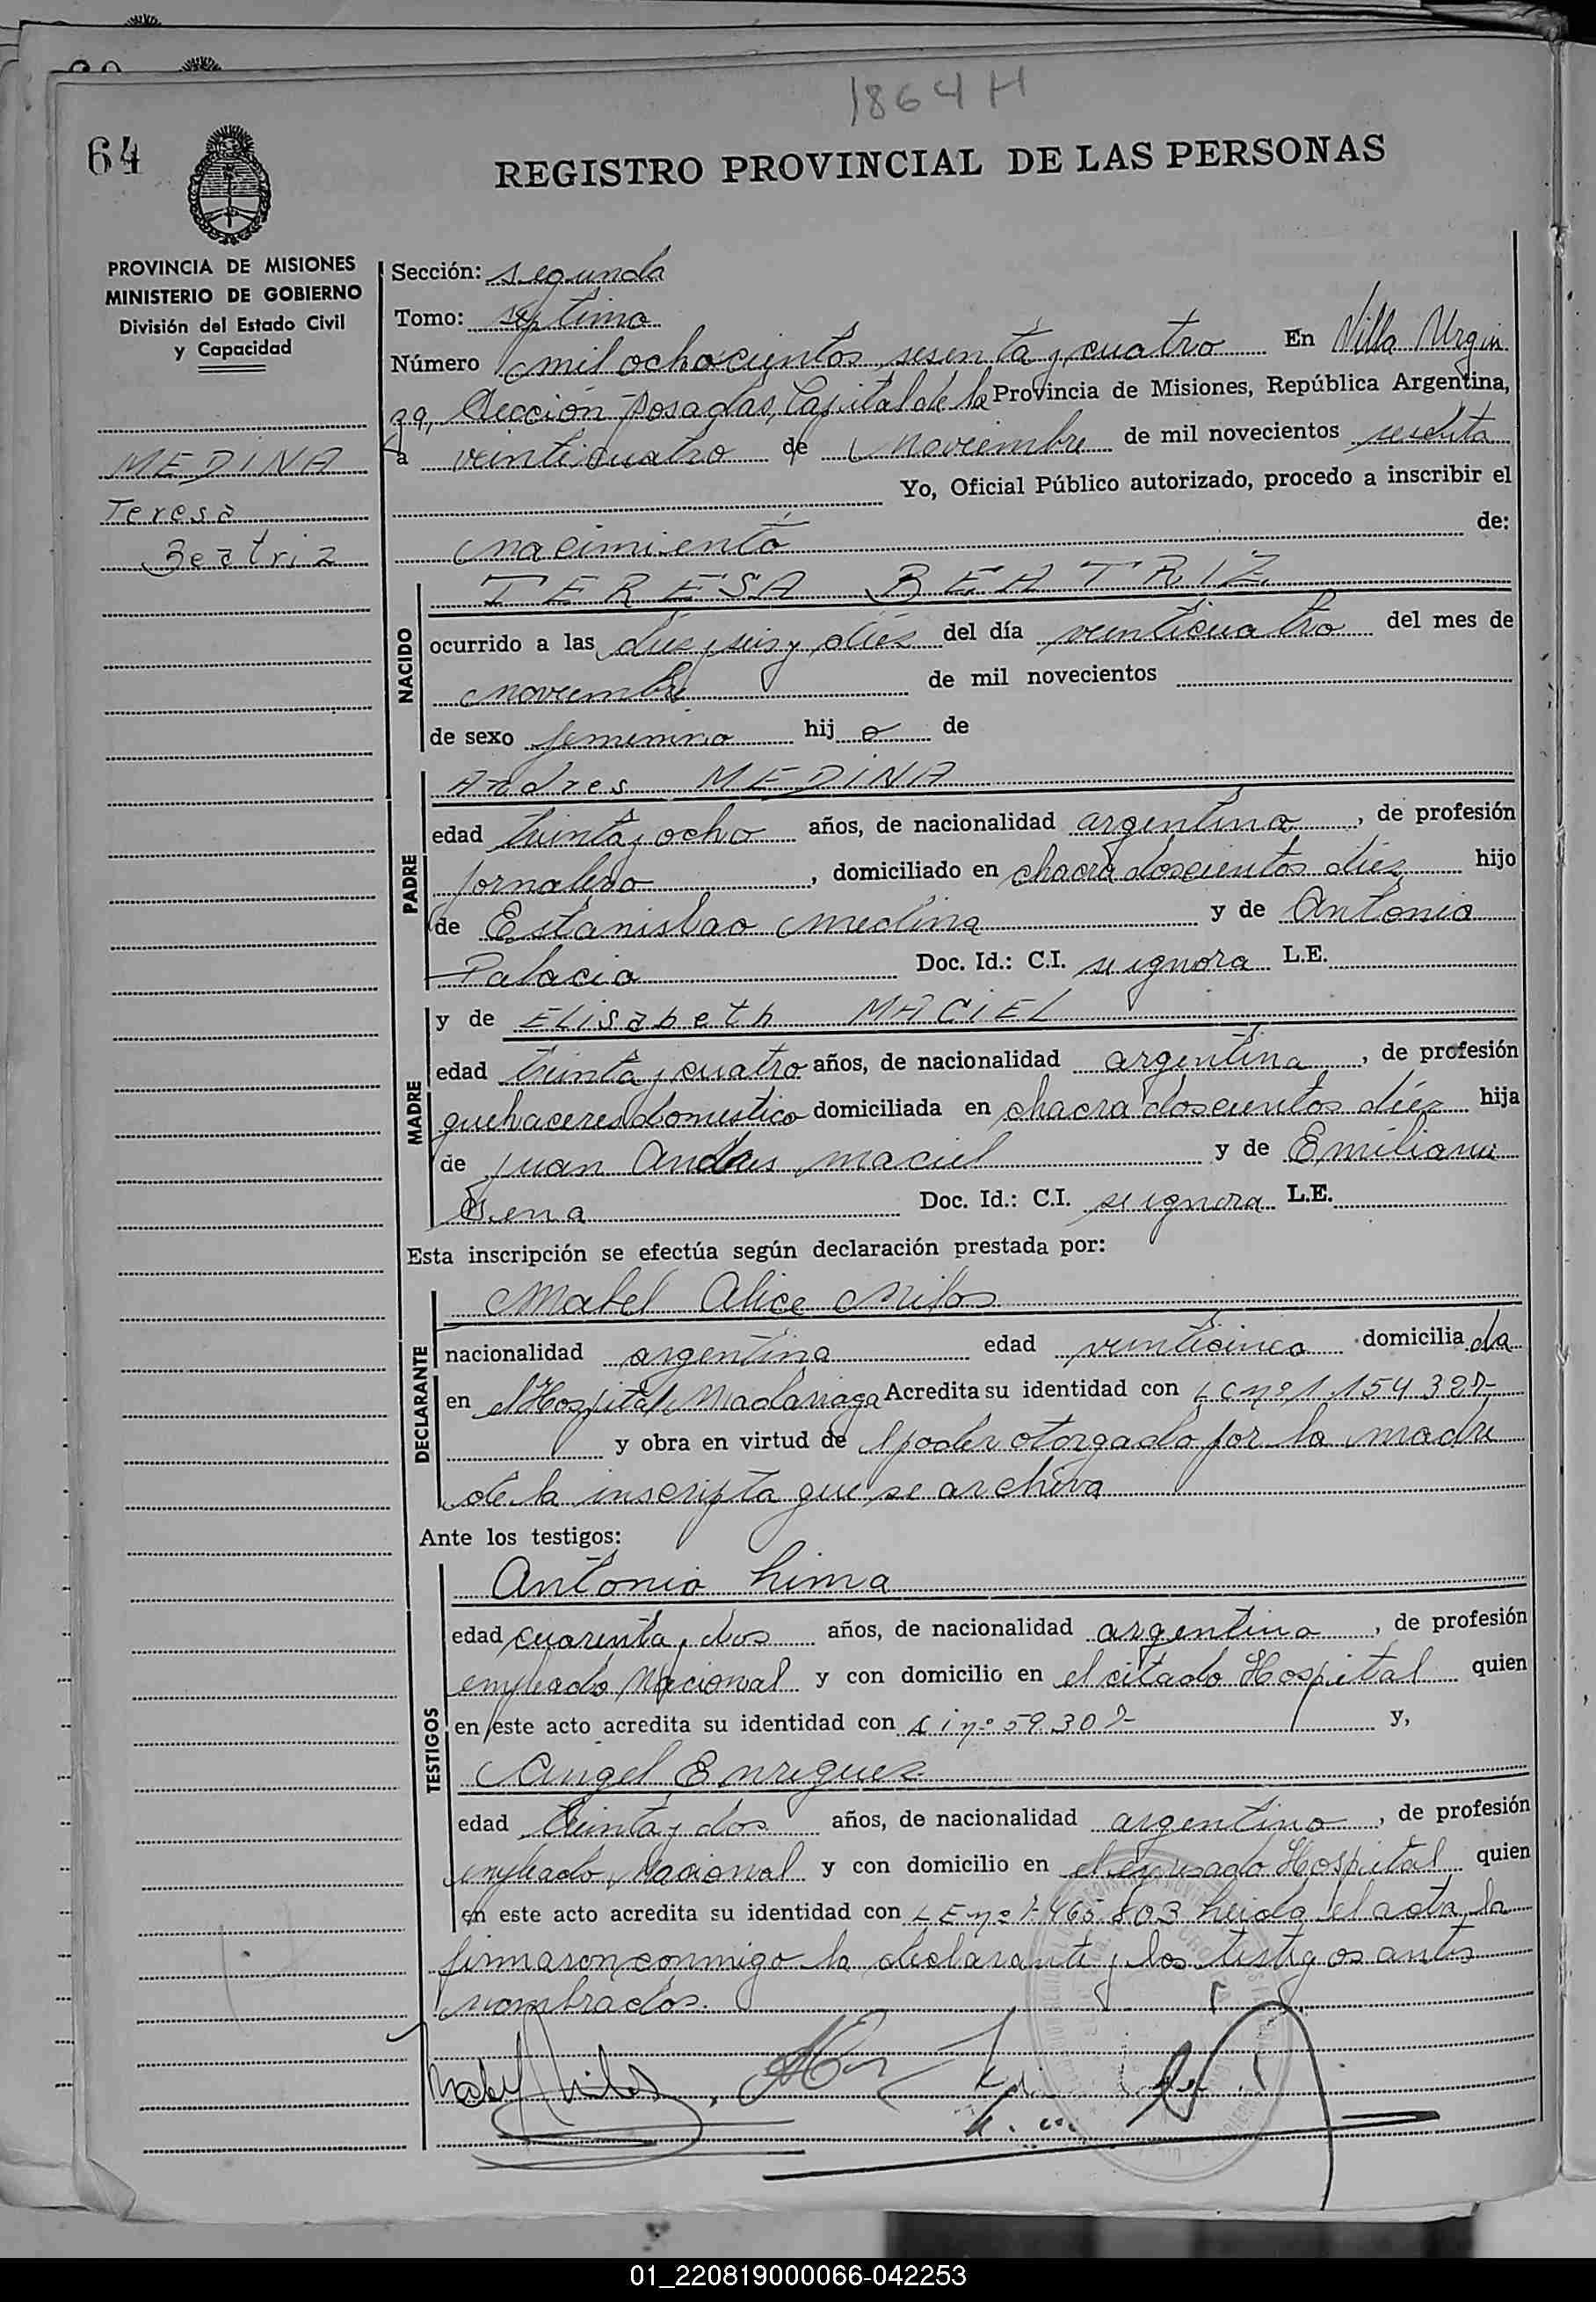 1864 H
64
REGISTRO PROVINCIAL DE LAS PERSONAS
PROVINCIA DE MISIONES
MINISTERIO DE GOBIERNO
División del Estado Civil
y Capacidad
MEDINA
Teresa
Beatriz
Sección: segunda
Tomo: septimo
Número mil ochocientos sesenta y cuatro En Villa Urqui
za, Sección Posadas, Capital de la Provincia de Misiones, República Argentina,
a veinticuatro de noviembre de mil novecientos sesenta
Yo, Oficial Público autorizado, procedo a inscribir el
nacimiento de:
NACIDO
TERESA BEATRIZ
ocurrido a las diez y seis y diéz del día veinticuatro del mes de
noviembre de mil novecientos
de sexo femenino hij a de
PADRE
Andres MEDINA
edad treinta y ocho años, de nacionalidad argentina, de profesión
jornalero, domiciliado en chacra doscientos diéz hijo
de Estanislao Medina y de Antonia
Palacio Doc. Id.: C.I. se ignora L.E.
MADRE
y de ELisabeth MACIEL
edad treinta y cuatro años, de nacionalidad argentina, de profesión
quehaceres domestico domiciliada en chacra doscientos diéz hija
de Juan Andres Maciel y de Emiliana
Doc. Id.: C.I. se ignora L.E.
Esta inscripción se efectúa según declaración prestada por:
DECLARANTE
Mabel Alice
nacionalidad argentina edad veinticinco domicilia da
en el Hospital Madariaga Acredita su identidad con L C nº 1.154.327-
y obra en virtud de el poder otorgado por la madre
de la inscripta que se archiva
Ante los testigos:
TESTIGOS
Antonio Lima
edad cuarenta y dos años, de nacionalidad argentina, de profesión
empleado Nacional y con domicilio en el citado Hospital quien
en este acto acredita su identidad con C i nº 59.307- y,
Angel Enriquez
edad treinta y dos años, de nacionalidad argentino, de profesión
empleado Nacional y con domicilio en el expresado Hospital quien
en este acto acredita su identidad con L E nº 7.465.803 Leida el acta, la
firmaron conmigo la declarante y los testigos antes
nombrados.
01_220819000066-042253